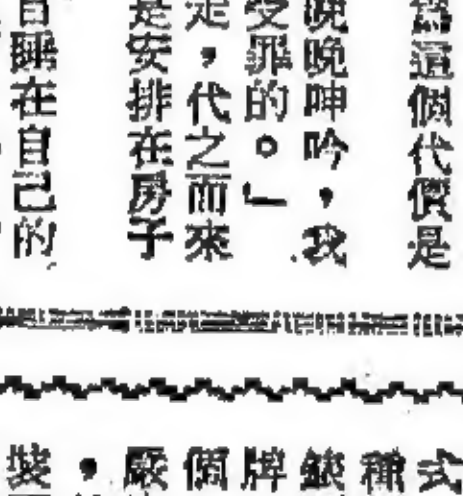 為這個代價是
晚晚呻吟，我
受罪的。」
走，代之而來
是安排在房子
自睡在自己的
式
種
牌
個
嚴
，
裝